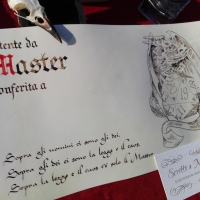 tente da
Master
onferita a
Sopra gli uomini ci sono gli dei.
Sopra gli dei ci sono la legge e il caos.
Sopra la legge e il caos c'è solo il Master
Scritto a